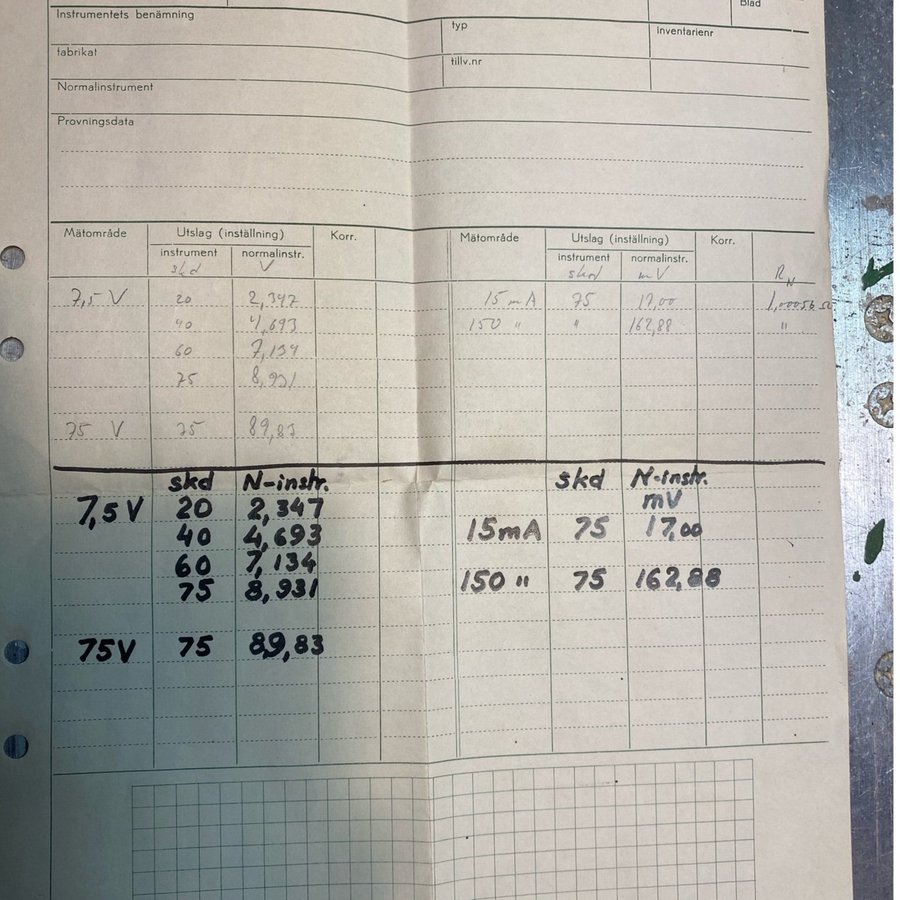 Blad
Instrumentets benämning
typ
inventarienr
fabrikat
tillv.nr
Normalinstrument
Provningsdata
Mätområde Utslag (inställning) Korr. Mätområde Utslag (inställning) Korr.
instrument normalinstr. instrument normalinstr.
skd V skd mV RN
7,5 V 20 2,347 15 mA 75 17,00 1,00056 Ω
40 4,693 150 " " 162,88 "
60 7,134
75 8,931
75 V 75 89,83
skd N-instr. skd N-instr.
mV
7,5 V 20 2,347
40 4,693 15mA 75 17,00
60 7,134
75 8,931 150 " 75 162,88
75V 75 89,83